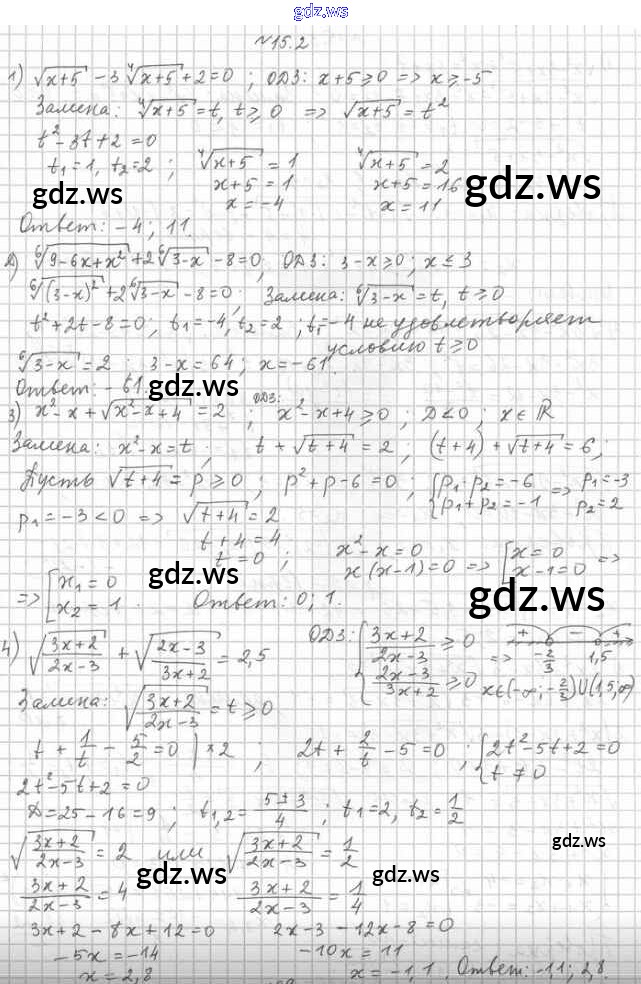 gdz.ws
№15.2
1) √(x+5) - 3 ⁴√(x+5) + 2 = 0 ; ОДЗ: x+5 ⩾ 0 => x ⩾ -5
Замена: ⁴√(x+5) = t, t ⩾ 0 => √(x+5) = t²
t² - 3t + 2 = 0
t₁ = 1, t₂ = 2 ; ⁴√(x+5) = 1 ⁴√(x+5) = 2
x+5 = 1 x+5 = 16
gdz.ws x = -4 x = 11 gdz.ws
Ответ: -4; 11.
2) ⁶√(9-6x+x²) + 2 ⁶√(3-x) - 8 = 0; ОДЗ: 3-x ⩾ 0; x ⩽ 3
⁶√((3-x)²) + 2 ⁶√(3-x) - 8 = 0; Замена: ⁶√(3-x) = t, t ⩾ 0
t² + 2t - 8 = 0; t₁ = -4, t₂ = 2 ; t₁ = -4 не удовлетворяет
условию t ⩾ 0
⁶√(3-x) = 2 ; 3-x = 64; x = -61.
Ответ: -61. gdz.ws
3) x² - x + √(x²-x+4) = 2 ; ОДЗ: x² - x + 4 ⩾ 0 ; D < 0 ; x ∈ ℝ
Замена: x² - x = t ; t + √(t+4) = 2 ; (t+4) + √(t+4) = 6;
Пусть √(t+4) = p ⩾ 0 ; p² + p - 6 = 0 ; { p₁·p₂ = -6 p₁+p₂ = -1 => p₁ = -3 p₂ = 2
p₁ = -3 < 0 => √(t+4) = 2
t+4 = 4
t = 0 ; x² - x = 0
x(x-1) = 0 => [ x = 0 x-1 = 0 =>
gdz.ws gdz.ws
=> [ x₁ = 0 x₂ = 1 . Ответ: 0; 1.
4) √((3x+2)/(2x-3)) + √((2x-3)/(3x+2)) = 2,5 ОДЗ: { (3x+2)/(2x-3) ⩾ 0 (2x-3)/(3x+2) ⩾ 0 => + - + -2/3 1,5
x∈(-∞; -2/3)U(1,5; ∞)
Замена: √((3x+2)/(2x-3)) = t ⩾ 0
t + 1/t - 5/2 = 0 | ×2 ; 2t + 2/t - 5 = 0 ; { 2t² - 5t + 2 = 0 t ≠ 0
2t² - 5t + 2 = 0
D = 25 - 16 = 9 ; t₁,₂ = (5±3)/4 ; t₁ = 2, t₂ = 1/2
√((3x+2)/(2x-3)) = 2 или √((3x+2)/(2x-3)) = 1/2 gdz.ws
(3x+2)/(2x-3) = 4 gdz.ws (3x+2)/(2x-3) = 1/4 gdz.ws
3x+2 - 8x + 12 = 0 2x - 3 - 12x - 8 = 0
-5x = -14 -10x = 11
x = 2,8 x = -1,1. Ответ: -1,1; 2,8.
gdz.ws